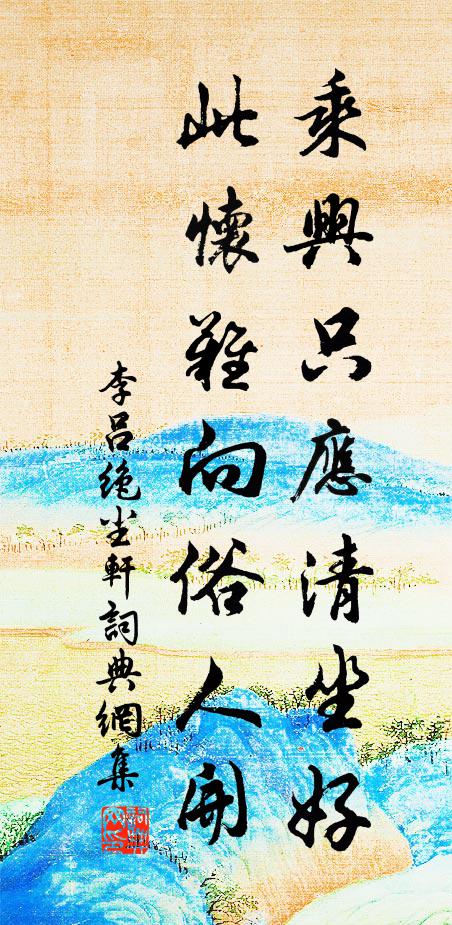 乘興只應清坐好
此懷難向俗人開
李呂絶尘軒詞典網集